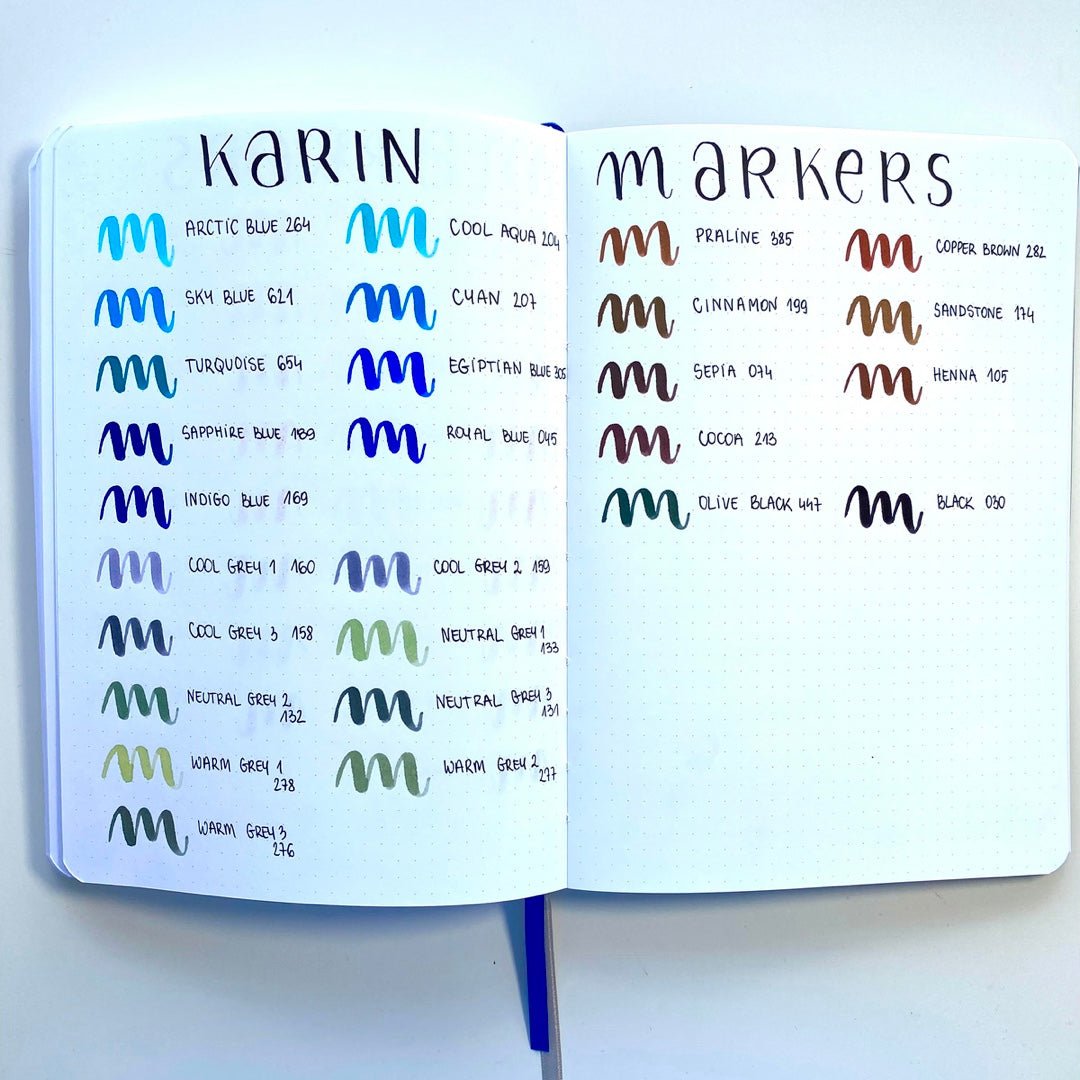 KARIN
m ARCTIC BLUE 264
m COOL AQUA 204
m SKY BLUE 621
m CYAN 207
m TURQUOISE 654
m EGIPTIAN BLUE 305
m SAPPHIRE BLUE 189
m ROYAL BLUE 045
m INDIGO BLUE 169
m COOL GREY 1 160
m COOL GREY 2 159
m COOL GREY 3 158
m NEUTRAL GREY 1
133
m NEUTRAL GREY 2
132
m NEUTRAL GREY 3
131
m WARM GREY 1
278
m WARM GREY 2
277
m WARM GREY 3
276
mARKeRS
m PRALINE 385
m COPPER BROWN 282
m CINNAMON 199
m SANDSTONE 174
m SEPIA 074
m HENNA 105
m COCOA 213
m OLIVE BLACK 447
m BLACK 030